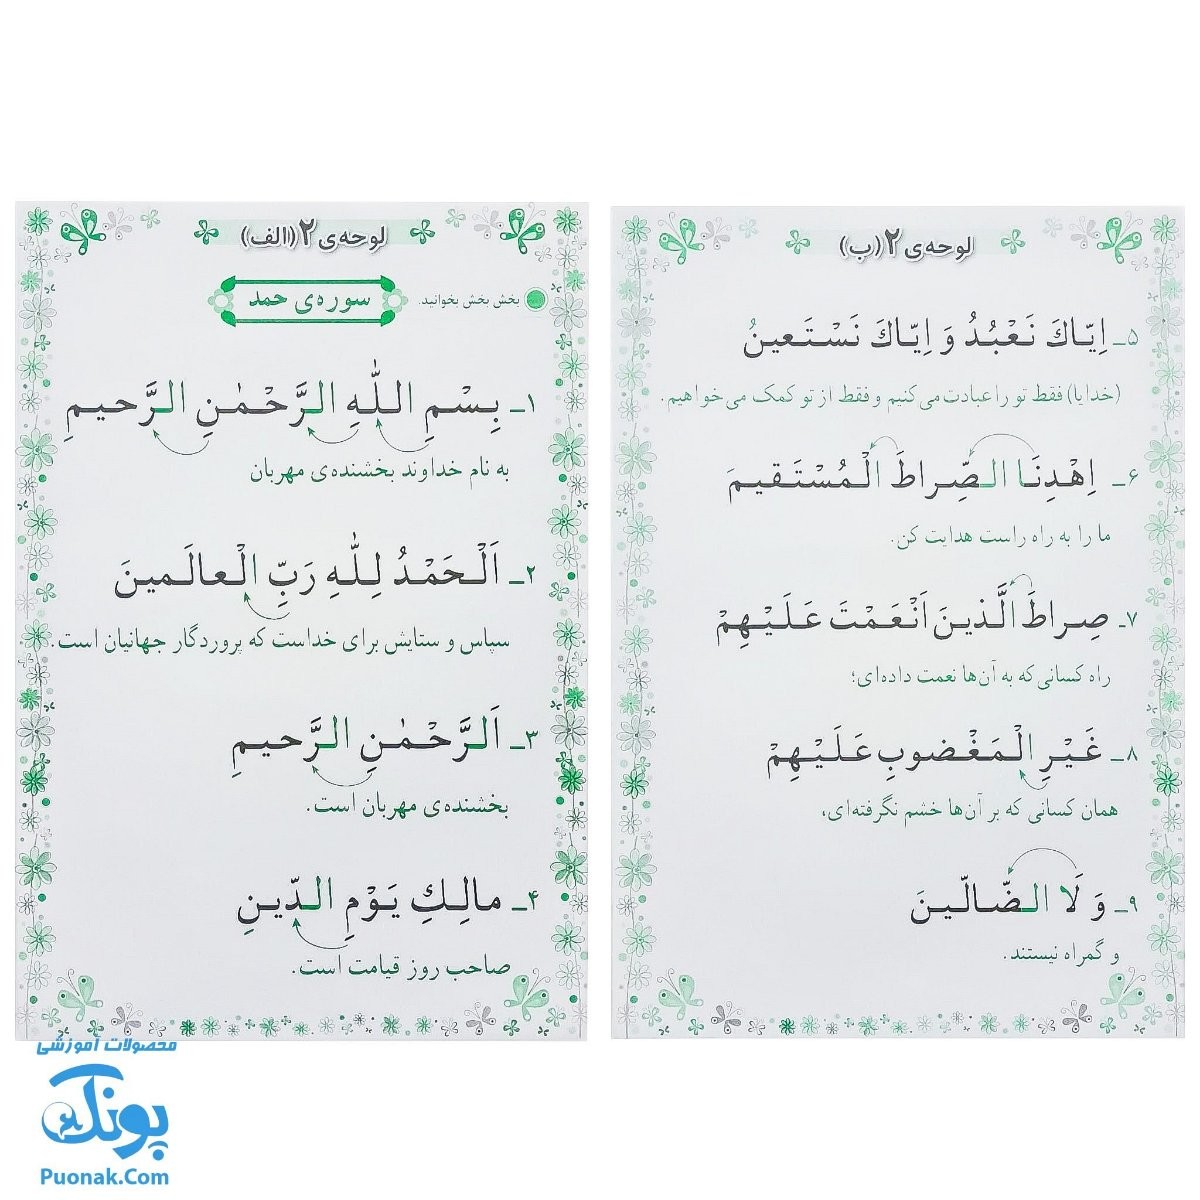 لوحه‌ی ۲ (الف)
بخش بخش بخوانید.
سوره‌ی حمد
۱ـ بِسْمِ اللّٰهِ الرَّحْمٰنِ الرَّحیمِ
به نام خداوند بخشنده‌ی مهربان
۲ـ اَلْحَمْدُ لِلّٰهِ رَبِّ الْعالَمینَ
سپاس و ستایش برای خداست که پروردگار جهانیان است.
۳ـ اَلرَّحْمٰنِ الرَّحیمِ
بخشنده‌ی مهربان است.
۴ـ مالِكِ یَوْمِ الدّینِ
صاحب روز قیامت است.
لوحه‌ی ۲ (ب)
۵ـ اِیّاكَ نَعْبُدُ وَ اِیّاكَ نَسْتَعینُ
(خدایا) فقط تو را عبادت می‌کنیم و فقط از تو کمک می‌خواهیم.
۶ـ اِهْدِنَا الصِّراطَ الْمُسْتَقیمَ
ما را به راه راست هدایت کن.
۷ـ صِراطَ الَّذینَ اَنْعَمْتَ عَلَیْهِمْ
راه کسانی که به آن‌ها نعمت داده‌ای؛
۸ـ غَیْرِ الْمَغْضوبِ عَلَیْهِمْ
همان کسانی که بر آن‌ها خشم نگرفته‌ای،
۹ـ وَ لَا الضّالّینَ
و گمراه نیستند.
محصولات آموزشی
پونک
Puonak.Com